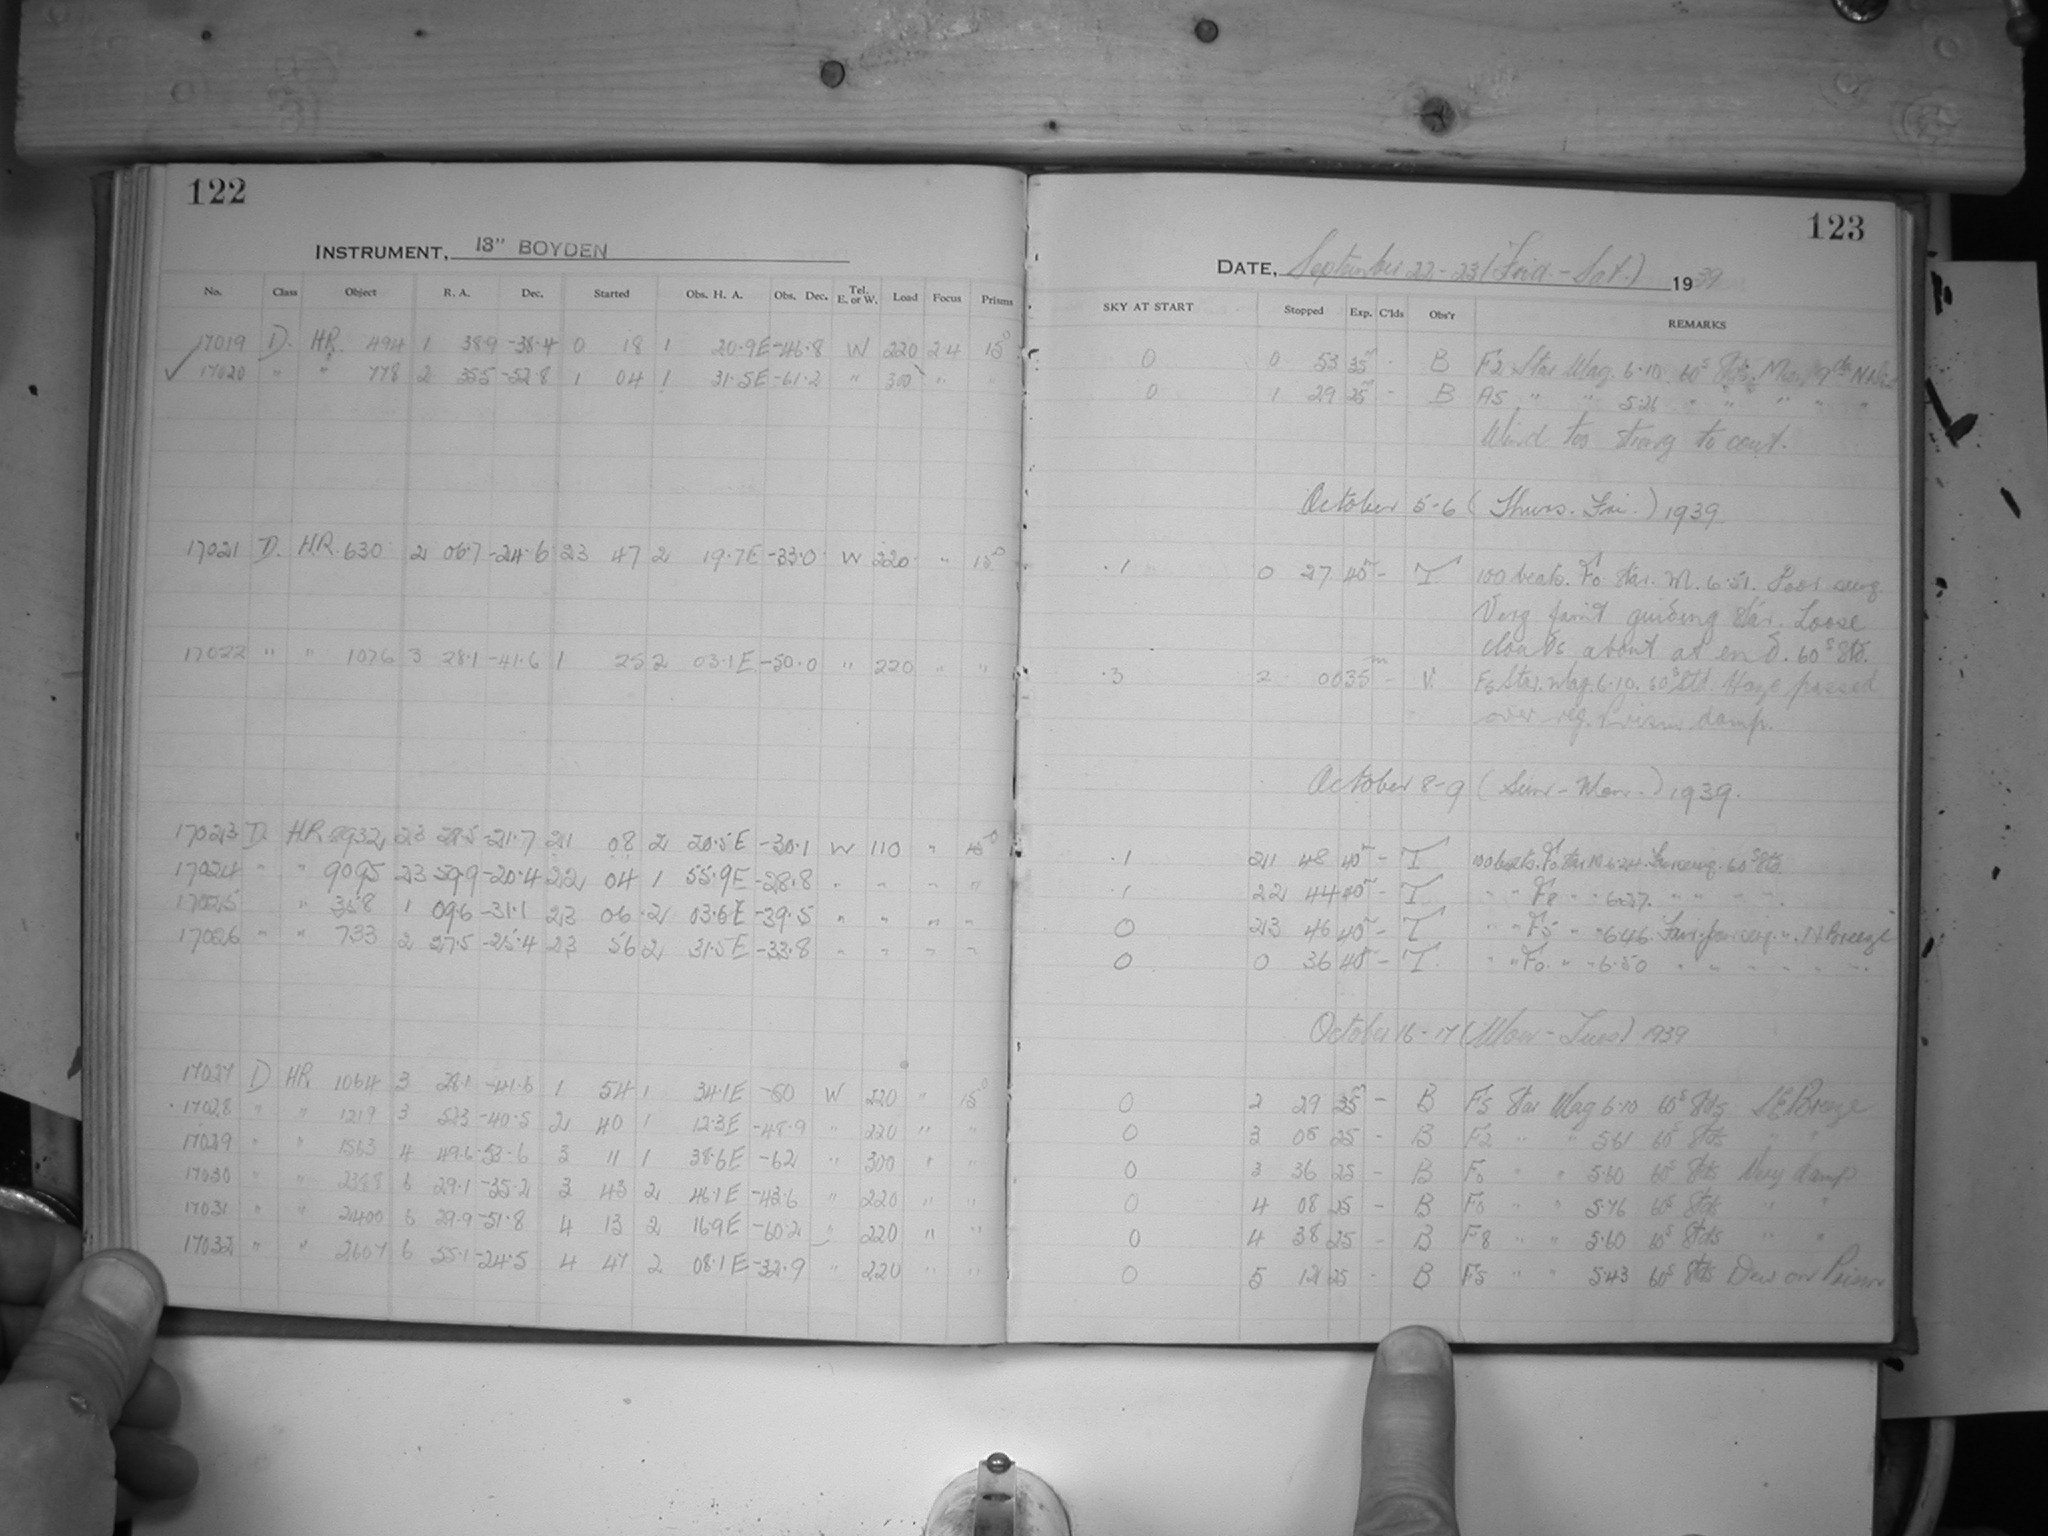 122
INSTRUMENT, 13" BOYDEN
No. Class Object R. A. Dec. Started Obs. H. A. Obs. Dec. Tel. E. or W. Load Focus Prisms
17019 D. HR. 494 1 38.9 -38.4 0 18 1 20.9E -46.8 W 220 2.4 15°
17020 " " 778 2 35.5 -52.8 1 04 1 31.5E -61.2 " 300 " "
17021 D. H.R. 630 2 06.7 -24.6 23 47 2 19.7E -33.0 W 220 " 15°
17022 " " 1076 3 28.1 -41.6 1 25 2 03.1E -50.0 " 220 " "
17023 D. H.R. 8932 23 28.5 -21.7 21 08 2 20.5E -30.1 W 110 " 15°
17024 " " 9095 23 59.9 -20.4 22 04 1 55.9E -28.8 " " " "
17025 " 358 1 09.6 -31.1 23 06 2 03.6E -39.5 " " " "
17026 " " 733 2 27.5 -25.4 23 56 2 31.5E -33.8 " " " "
17027 D HR. 1064 3 28.1 -41.6 1 54 1 34.1E -50 W 220 " 15°
17028 " " 1219 3 52.3 -40.5 2 40 1 12.3E -48.9 " 220 " "
17029 " " 1563 4 49.6 -53.6 3 11 1 38.6E -62 " 300 " "
17030 " " 2388 6 29.1 -35.2 3 43 2 46.1E -43.6 " 220 " "
17031 " " 2400 6 29.9 -51.8 4 13 2 16.9E -60.2 " 220 " "
17032 " " 2607 6 55.1 -24.5 4 47 2 08.1E -32.9 " 220 " "
123
DATE, September 22-23 (Frid.-Sat.) 1939
SKY AT START Stopped Exp. C'lds Obs'r REMARKS
0 0 53 35m - B F2 Star Mag. 6.10 60s Stds.
0 1 29 25m - B A5 " " 5.26 " " " " "
Wind too strong to cont.
October 5-6 (Thurs. Fri.) 1939
.1 0 27 40m - T 100 beats. F0 star. M. 6.51. Poor seeing.
Very faint guiding star. Loose
clouds about at end. 60s Std.
.3 2 00 35m - V. F5 Star. Mag. 6.10. 60s Std. Haze passed
over reg. Prism damp.
October 8-9 (Sun-Mon.) 1939.
.1 21 48 40m - T 100 beats. F0 star M 6.24. 60s Std.
.1 22 44 40m - T " " F8 " " 6.27. " " " "
0 23 46 40m - T " " F5 " " 6.46. N Breeze
0 0 36 40m - T. " " F0. " " 6.50 " " " " " "
October 16-17 (Mon-Tues) 1939
0 2 29 35m - B F5 Star Mag 6.10 60s Stds SE Breeze
0 3 05 25 - B F2 " " 5.61 60s Stds " "
0 3 36 25 - B F0 " " 5.60 60s Stds Very damp
0 4 08 25 - B F0 " " 5.76 60s Stds " "
0 4 38 25 - B F8 " " 5.60 60s Stds " "
0 5 12 25 - B F5 " " 5.43 60s Stds Dew on Prism